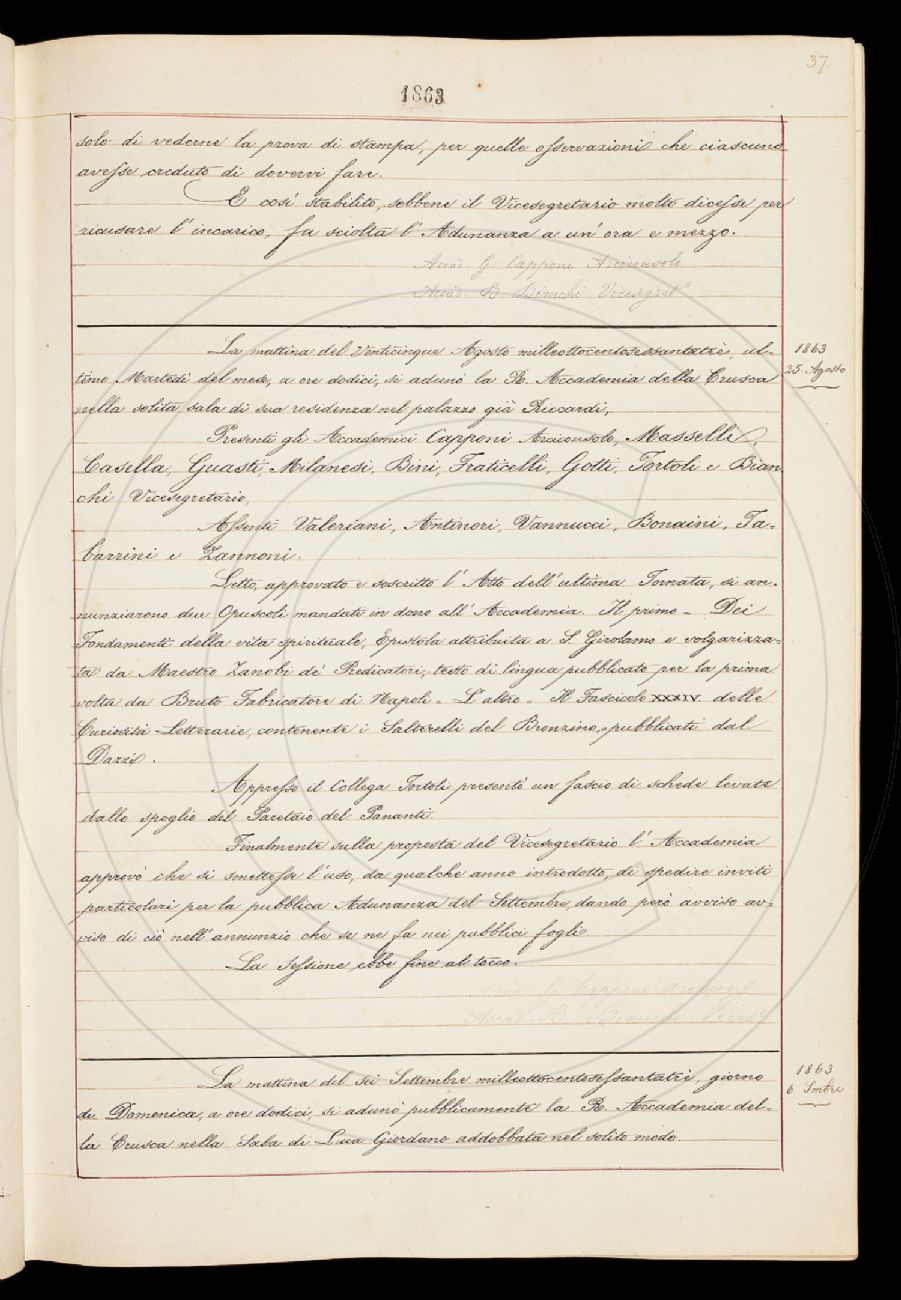 37.
1863
solo di vederne la prova di stampa, per quelle osservazioni che ciascuno
avesse creduto di dovervi fare.
E così stabilito, sebbene il Vicesegretario molto dicesse per
ricusare l'incarico, fu sciolta l'Adunanza a un'ora e mezzo.
Accad. G. Capponi Arciconsolo
Accad. B. Bianchi Vicesegret.º
La mattina del Venticinque Agosto milleottocentosessantatrè, ul-
timo Martedì del mese, a ore dodici, si adunò la R. Accademia della Crusca
nella solita sala di sua residenza nel palazzo già Riccardi,
1863
25. Agosto
Presenti gli Accademici Capponi Arciconsolo, Masselli,
Casella, Guasti, Milanesi, Bini, Fraticelli, Gotti, Tortoli e Bian
chi Vicesegretario,
Assenti Valeriani, Antinori, Vannucci, Bonaini, Ta-
barrini e Zannoni.
Letto, approvato e soscritto l'Atto dell'ultima Tornata, si an-
nunziarono due Opuscoli mandati in dono all'Accademia. Il primo - Dei
Fondamenti della vita spirituale, Epistola attribuita a S. Girolamo e volgarizza-
ta da Maestro Zanobi de' Predicatori, testo di lingua pubblicato per la prima
volta da Bruto Fabricatore di Napoli - L'altro - Il Fascicolo XXXIV. delle
Curiosità Letterarie, contenente i Saltarelli del Bronzino, pubblicati dal
Dazzi.
Appresso il Collega Tortoli presentò un fascio di schede levate
dallo spoglio del Paretaio del Pananti.
Finalmente sulla proposta del Vicesegretario l'Accademia
approvò che si smettesse l'uso, da qualche anno introdotto, di spedire inviti
particolari per la pubblica Adunanza del Settembre, dando però avviso av-
viso di ciò nell'annunzio che se ne fa nei pubblici fogli
La Sessione ebbe fine al tocco.
Accad. G. Capponi Arcicons.
Accad. B. Bianchi Vicese
La mattina del sei Settembre milleottocentosessantatrè, giorno
di Domenica, a ore dodici, si adunò pubblicamente la R. Accademia del-
la Crusca nella Sala di Luca Giordano addobbata nel solito modo.
1863
6. Smbre